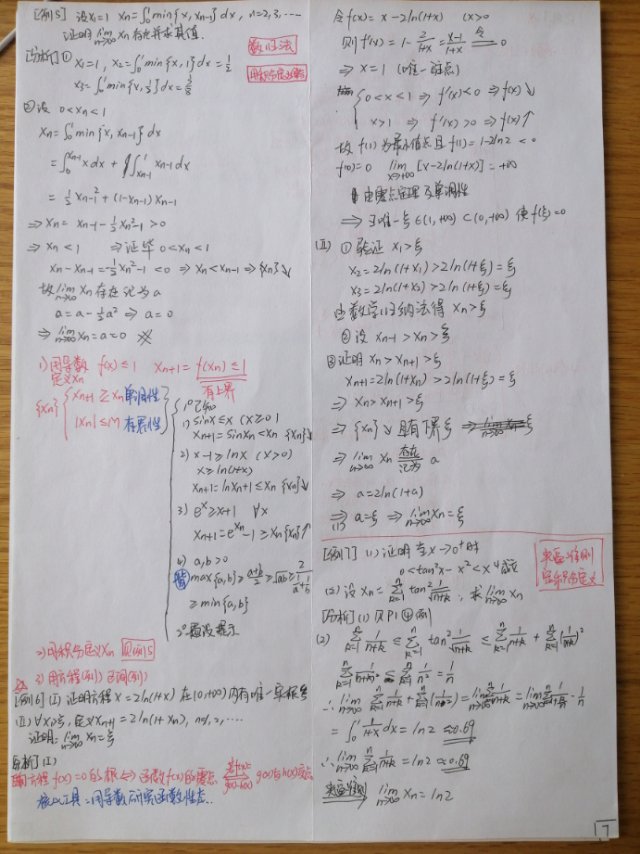 [例5] 设x₁=1 xₙ=∫₀¹min{x, xₙ₋₁}dx, n=2,3,…
证明 lim n→∞ xₙ 存在并求其值.
归纳法
[分析] ① x₁=1, x₂=∫₀¹min{x,1}dx=1/2
x₃=∫₀¹min{x,1/2}dx=3/8
②设 0<xₙ<1
xₙ=∫₀¹min{x, xₙ₋₁}dx
=∫₀^{xₙ₋₁} x dx + ∫_{xₙ₋₁}^1 xₙ₋₁ dx
=1/2 xₙ₋₁² + (1-xₙ₋₁)xₙ₋₁
⇒ xₙ = xₙ₋₁ - 1/2 xₙ₋₁² > 0
⇒ xₙ<1 ⇒证毕 0<xₙ<1
xₙ-xₙ₋₁ = -1/2 xₙ₋₁² <0 ⇒ xₙ<xₙ₋₁ ⇒ {xₙ}↓
故 lim n→∞ xₙ 存在 记为a
a = a - 1/2 a² ⇒ a=0
⇒ lim n→∞ xₙ = a = 0 ※
1) 用导数 f(x)≤1 xₙ₊₁ = f(xₙ)≤1
定义xₙ 有上界
{xₙ} { xₙ₊₁≥xₙ 单调性
|xₙ|≤M 有界性
1° 已知
1) sinx≤x (x≥0)
xₙ₊₁=sinxₙ<xₙ {xₙ}↓
2) x-1≥lnx (x>0)
x≥ln(1+x)
xₙ₊₁=lnxₙ+1≤xₙ {xₙ}↓
3) eˣ≥x+1 ∀x
xₙ₊₁=e^{xₙ}-1≥xₙ {xₙ}↑
4) a,b>0
max{a,b}≥(a+b)/2≥√ab≥2/(1/a+1/b)
≥min{a,b}
2° 题设提示
2) 用积分定义xₙ 见例5
3) 用方程(列)
[例6] (I) 证明方程 x=2ln(1+x) 在(0,+∞)内有唯一实根ξ
(II) ∀x₁>ξ, 定义xₙ₊₁=2ln(1+xₙ), n=1,2,…
证明: lim n→∞ xₙ=ξ
[分析] (I)
方程 f(x)=0的根⇔函数f(x)的零点
核心工具:用导数研究函数性态..
令f(x)=x-2ln(1+x) (x>0)
则f'(x)=1-2/(1+x)=(x-1)/(x+1) 令= 0
⇒ x=1 (唯一驻点)
{ 0<x<1 ⇒ f'(x)<0 ⇒ f(x)↓
x>1 ⇒ f'(x)>0 ⇒ f(x)↑
故 f(1) 为最小值点且 f(1)=1-2ln2<0
f(0)=0 lim x→+∞ [x-2ln(1+x)]=+∞
由零点定理及单调性
⇒ ∃唯一ξ∈(1,+∞)⊂(0,+∞) 使f(ξ)=0
(II) ①验证 x₁>ξ
x₂=2ln(1+x₁)>2ln(1+ξ)=ξ
x₃=2ln(1+x₂)>2ln(1+ξ)=ξ
由数学归纳法得 xₙ>ξ
②设 xₙ₋₁>xₙ>ξ
③证明 xₙ>xₙ₊₁>ξ
xₙ₊₁=2ln(1+xₙ)>2ln(1+ξ)=ξ
⇒ xₙ>xₙ₊₁>ξ
⇒ {xₙ}↓ 且有下界ξ
⇒ lim n→∞ xₙ 存在 记为 a
⇒ a=2ln(1+a)
(I)⇒ a=ξ ⇒ lim n→∞ xₙ=ξ
[例7] (1) 证明 当x→0⁺时
0<tan²x-x²<x⁴成立
夹逼准则
定积分定义
(2) 设 xₙ=∑ₖ₌₁ⁿ tan² 1/√(n+k), 求 lim n→∞ xₙ
[分析] (1) 见P1 例
(2) ∑ₖ₌₁ⁿ 1/(n+k) ≤ ∑ₖ₌₁ⁿ tan² 1/√(n+k) ≤ ∑ₖ₌₁ⁿ 1/(n+k) + ∑ₖ₌₁ⁿ (1/(n+k))²
∑ₖ₌₁ⁿ 1/(n+k)² ≤ ∑ₖ₌₁ⁿ 1/n² = 1/n
=∫₀¹ 1/(1+x) dx = ln2 ≈0.69
∴ lim n→∞ ∑ₖ₌₁ⁿ 1/(n+k) = ln2 ≈0.69
夹逼准则⇒ lim n→∞ xₙ=ln2
7